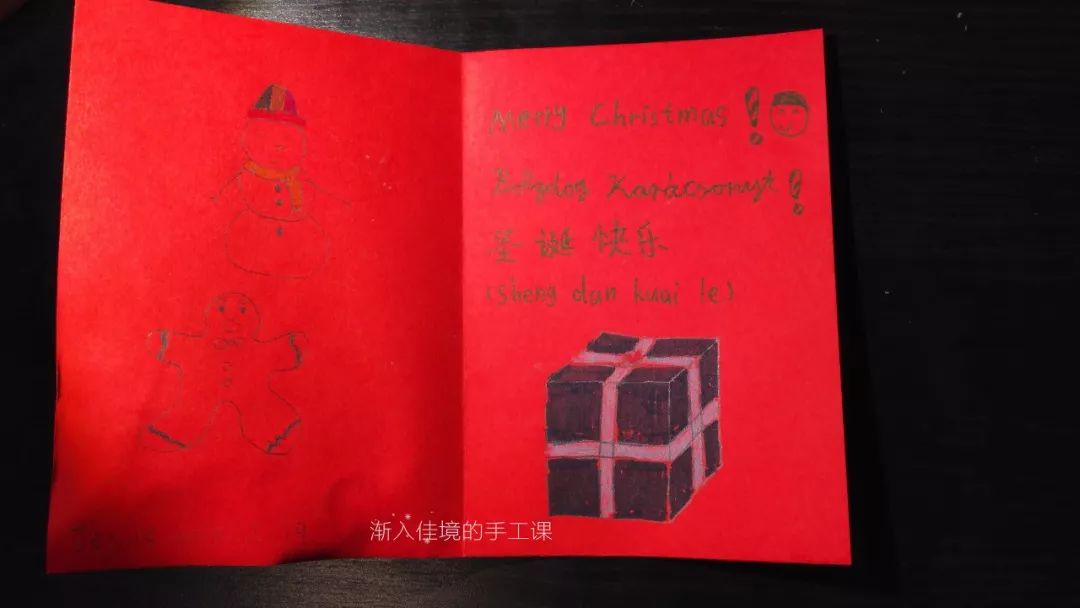 Merry Christmas!
Boldog Karácsonyt!
圣诞快乐
(sheng dan kuai le)
渐入佳境的手工课